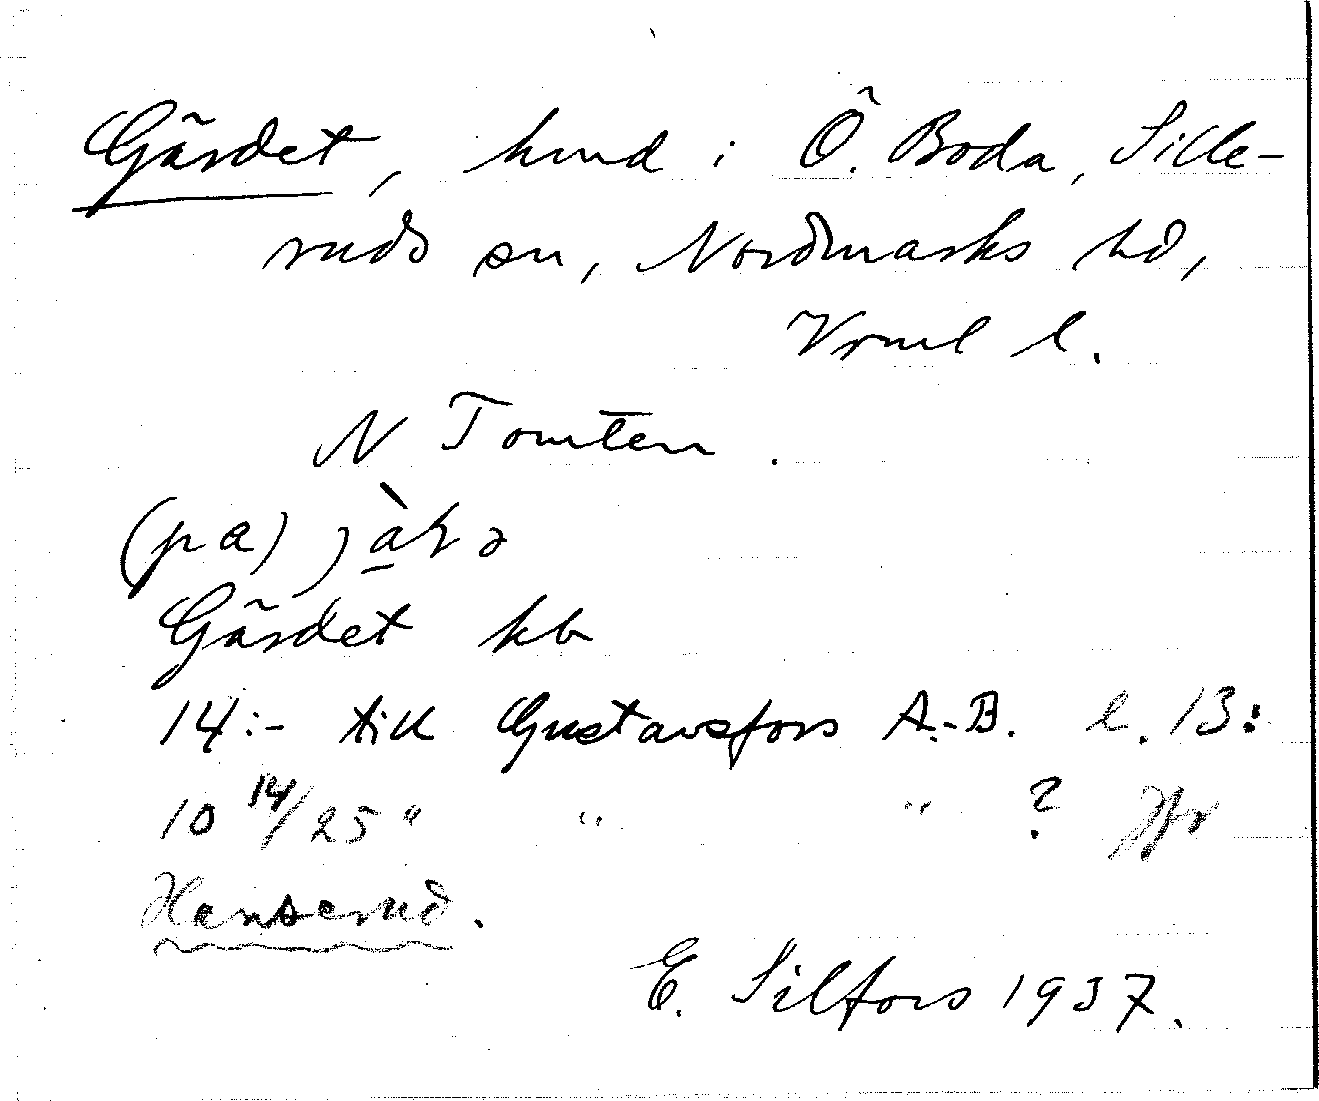 Gärdet, hmd i Ö. Boda, Sille-
ruds sn, Nordmarks hd,
Vrml l.
N Tomten.
(pa)
Gärdet kb
14:- till Gustavsfors A.-B. l. 13:
10 14/25 " " " ? Jfr
E. Silfors 1937.